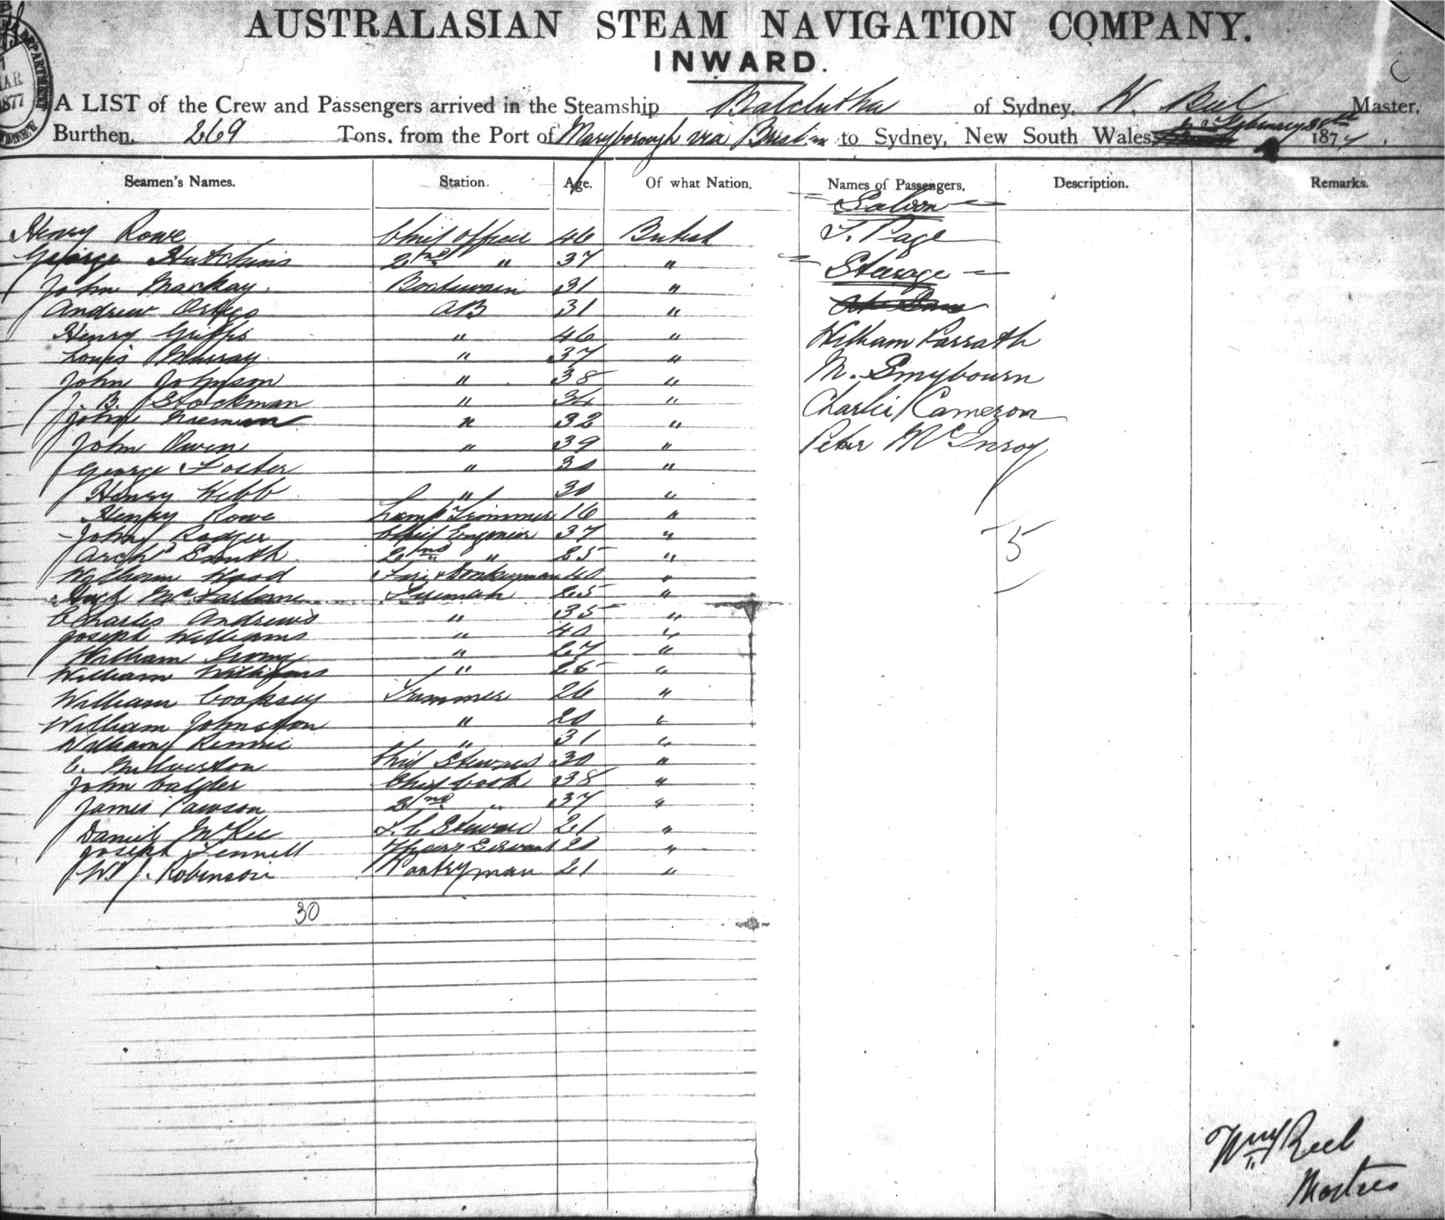 AUSTRALASIAN STEAM NAVIGATION COMPANY.
INWARD.
A LIST of the Crew and Passengers arrived in the Steamship Balclutha of Sydney, W. Beel Master,
Burthen, 269 Tons, from the Port of Maryborough via to Sydney, New South Wales 187
Seamen's Names. Station. Age. Of what Nation. Names of Passengers, Description. Remarks.
Saloon
Henry Rowe Chief Officer 46 British
J. Page
George Hutchins 2nd " 37 "
Steerage
John Mackay Boatswain 31 "
Andrew AB 31 "
Henry Griffis " 46 "
William Parrath
Louis Murray " 37 "
John Johnson " 38 "
M. Smybourn
J. B. Stockman " 34 "
Charlie Cameron
John " 32 "
John Owen " 39 "
Peter McInroy
George Foster " 30 "
Henry Webb " 30 "
Henry Rowe Lamp Trimmer 16 "
John Rodger Chief Engineer 37 "
5
Archd Smith 2nd " 25 "
William Wood Fire & Donkeyman 40 "
McFarlane Fireman 25 "
Charles Andrews " 35 "
Joseph Williams " 40 "
William " 27 "
William Williams " 26 "
William Cooksey Trimmer 26 "
William Johnston " 20 "
William Rennie " 31 "
C. Milverton Chief Steward 30 "
John Calder Chief Cook 38 "
James Pawson 2nd " 37 "
Daniel McKee F. C. Steward 21 "
Joseph Fennell Servant 20 "
W J. Robinson Pantryman 21 "
30
Wm Beel
Master